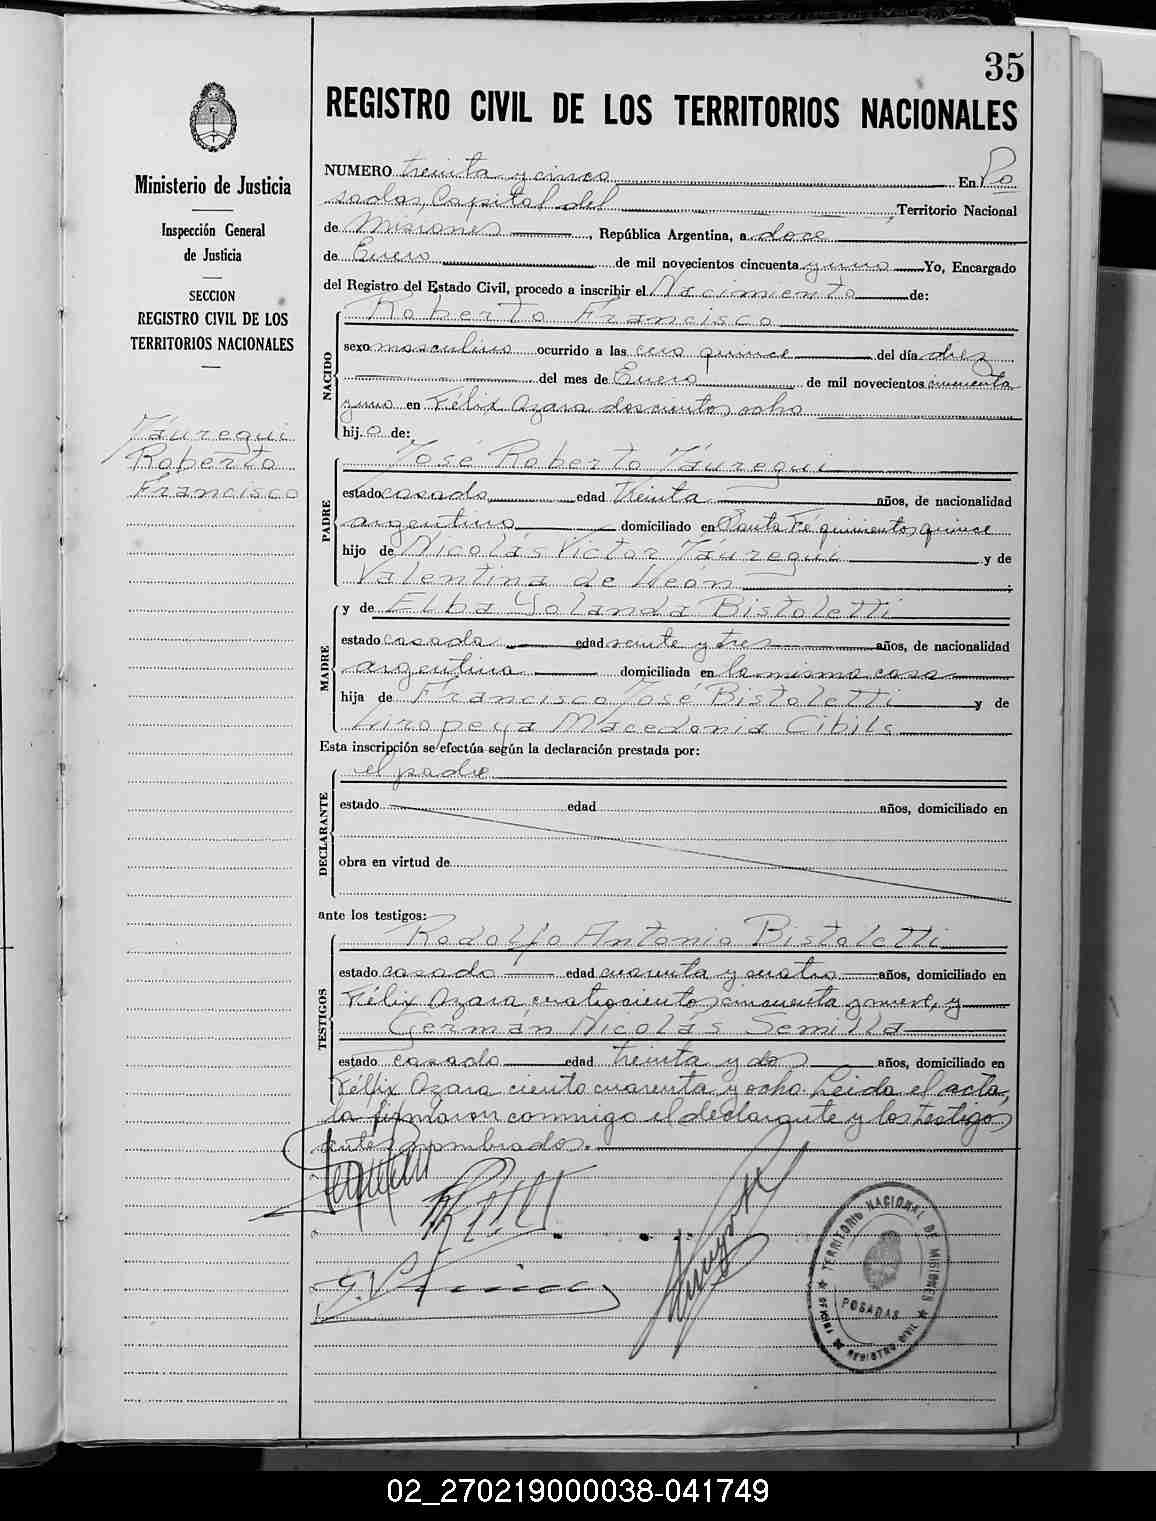 35
REGISTRO CIVIL DE LOS TERRITORIOS NACIONALES
Ministerio de Justicia
Inspección General
de Justicia
SECCION
REGISTRO CIVIL DE LOS
TERRITORIOS NACIONALES
Jáuregui
Roberto
Francisco
NUMERO treinta y cinco En Po
sadas, Capital del, Territorio Nacional
de Misiones, República Argentina, a doce
de Enero de mil novecientos cincuenta y uno Yo, Encargado
del Registro del Estado Civil, procedo a inscribir el Nacimiento de:
NACIDO
Roberto Francisco
sexo masculino ocurrido a las cero quince del día diez
del mes de Enero de mil novecientos cincuenta
y uno en Félix Azara doscientos ocho
hij.o de:
PADRE
José Roberto Jáuregui
estado casado edad treinta años, de nacionalidad
argentino domiciliado en Santa Fé quinientos quince
hijo de Nicolás Victor Jáuregui y de
Valentina de León;
MADRE
y de Elba Yolanda Bistoletti
estado casada edad veinte y tres años, de nacionalidad
argentina domiciliada en la misma casa
hija de Francisco José Bistoletti y de
Liropeya Macedonia Cibils
Esta inscripción se efectúa según la declaración prestada por:
DECLARANTE
el padre
estado edad años, domiciliado en
obra en virtud de
ante los testigos:
TESTIGOS
Rodolfo Antonio Bistoletti
estado casado edad cuarenta y cuatro años, domiciliado en
Félix Azara cuatrocientos cincuenta y nueve, y
Germán Nicolás Semilla
estado casado edad treinta y dos años, domiciliado en
Félix Azara ciento cuarenta y ocho. Leida el acta,
la firmaron conmigo el declarante y los testigos
antes nombrados.
TERRITORIO NACIONAL DE MISIONES
POSADAS
REGISTRO CIVIL
02_270219000038-041749